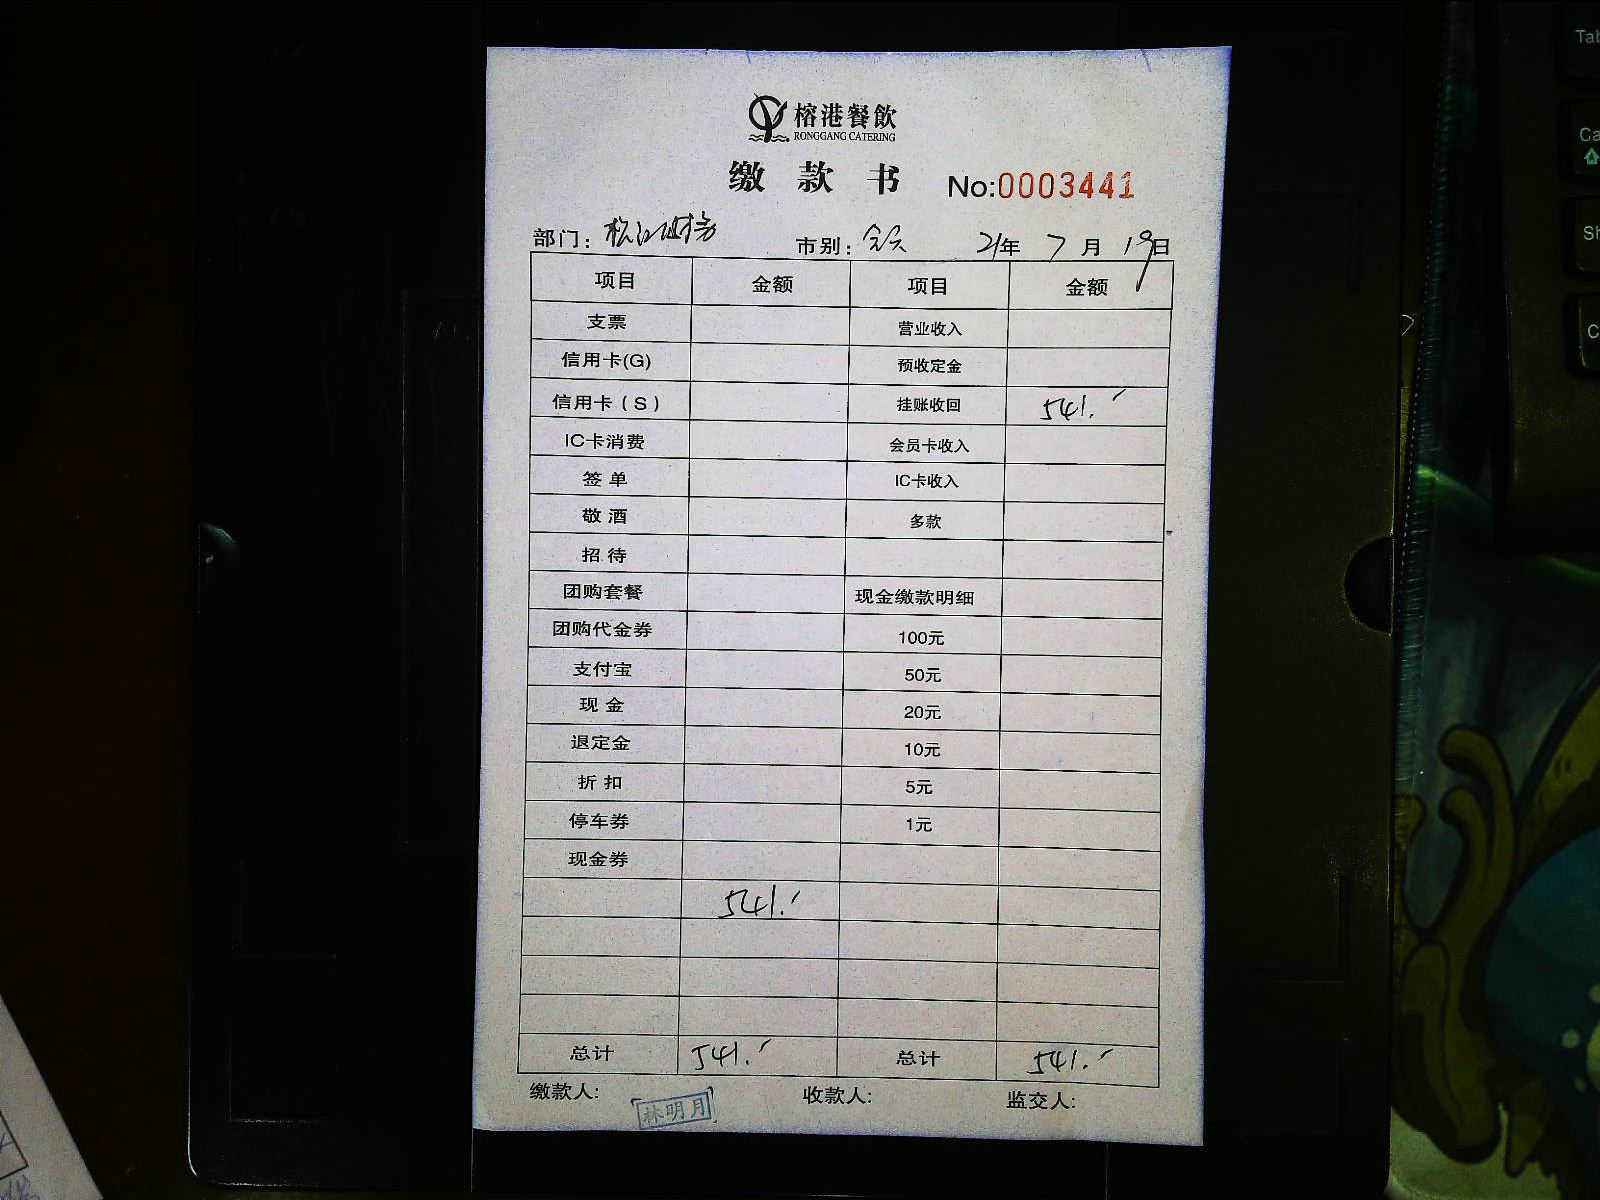 榕港餐飲
RONGGANG CATERING
缴 款 书 No:0003441
部门: 松江财务 市别: 全天 21年 7月 19日
项目 金额 项目 金额
支票 营业收入
信用卡(G) 预收定金
信用卡(S) 挂账收回 541.
IC卡消费 会员卡收入
签单 IC卡收入
敬酒 多款
招待
团购套餐 现金缴款明细
团购代金券 100元
支付宝 50元
现金 20元
退定金 10元
折扣 5元
停车券 1元
现金券
541.
总计 541. 总计 541.
缴款人: 林明月 收款人: 监交人:
Tab